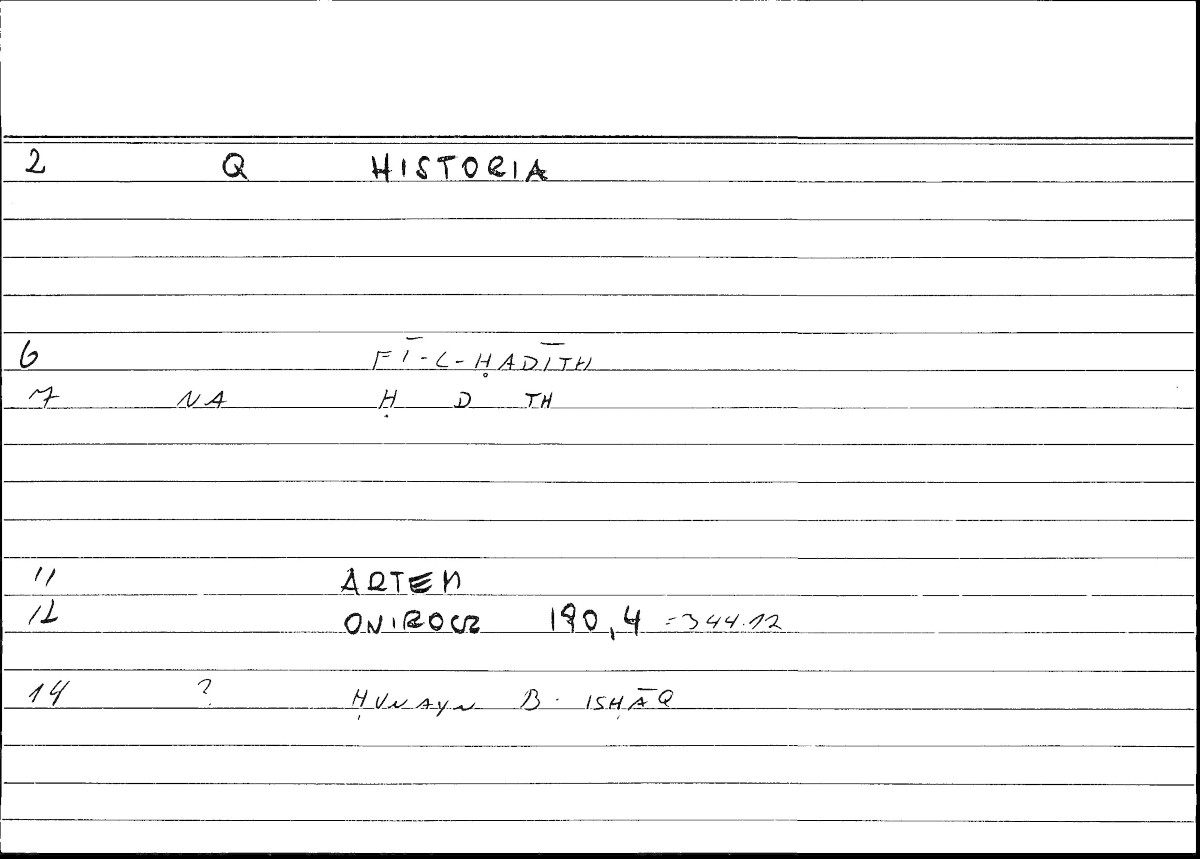 2 Q HISTORIA
6 FĪ-L-ḤADĪTH
7 NA Ḥ D TH
11 ARTEM
12 ONIROCR 190,4 =344.12
14 ? ḤUNAYN B. ISḤĀQ